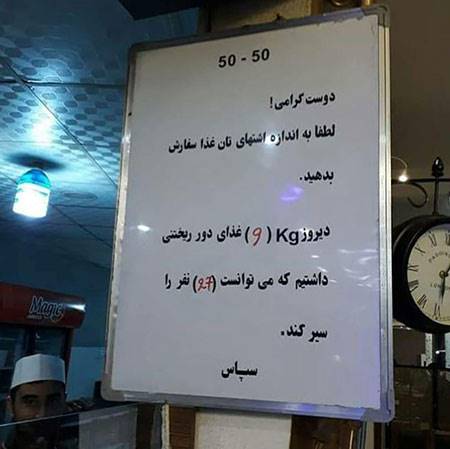 50 - 50
دوست گرامی!
لطفا به اندازه اشتهای تان غذا سفارش
بدهید.
دیروز Kg (9) غذای دور ریختنی
داشتیم که می توانست (27) نفر را
سیر کند.
سپاس
Magic